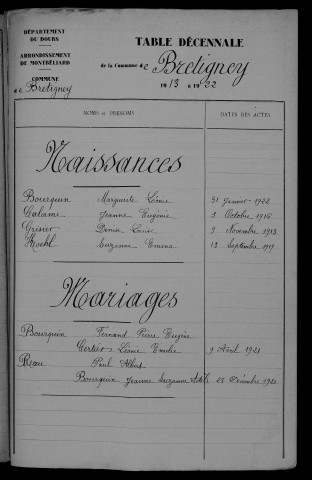 DÉPARTEMENT
DU DOUBS
ARRONDISSEMENT
DE MONTBÉLIARD
COMMUNE
de Bretigney
TABLE DÉCENNALE
de la Commune de Bretigney
1913 à 1922
NOMS et PRÉNOMS
DATES DES ACTES
Naissances
Bourquin Marguerite Léonie 31 Janvier 1922
Calame Jeanne Eugénie 3 Octobre 1916
Grisier Louise 9 Novembre 1913
Suzanne Emma 13 Septembre 1919
Mariages
Bourquin Fernand Pierre Eugène
Léonie Emilie 9 Avril 1921
Paul Albert
Bourquin Jeanne Suzanne 28 Décembre 1920